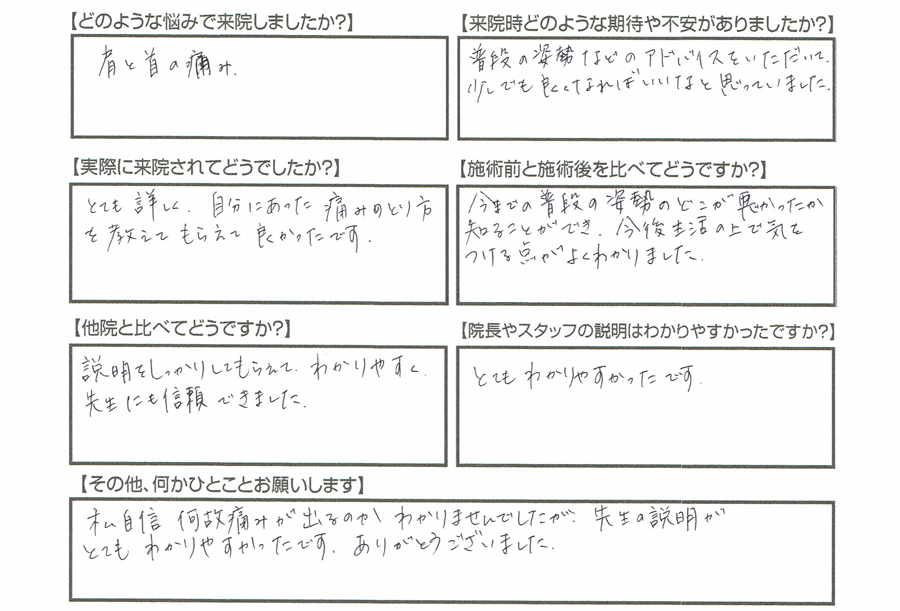 【どのような悩みで来院しましたか?】
肩と首の痛み.
【来院時どのような期待や不安がありましたか?】
普段の姿勢などのアドバイスをいただいて、
少しでも良くなればいいなと思っていました.
【実際に来院されてどうでしたか?】
とても詳しく、自分にあった痛みのとり方
を教えてもらえて良かったです.
【施術前と施術後を比べてどうですか?】
今までの普段の姿勢のどこが悪かったか
知ることができ、今後生活の上で気を
つける点がよくわかりました.
【他院と比べてどうですか?】
説明をしっかりしてもらえて、わかりやすく、
先生にも信頼できました.
【院長やスタッフの説明はわかりやすかったですか?】
とてもわかりやすかったです.
【その他、何かひとことお願いします】
私自信 何故痛みが出るのかわかりませんでしたが、先生の説明が
とてもわかりやすかったです. ありがとうございました.